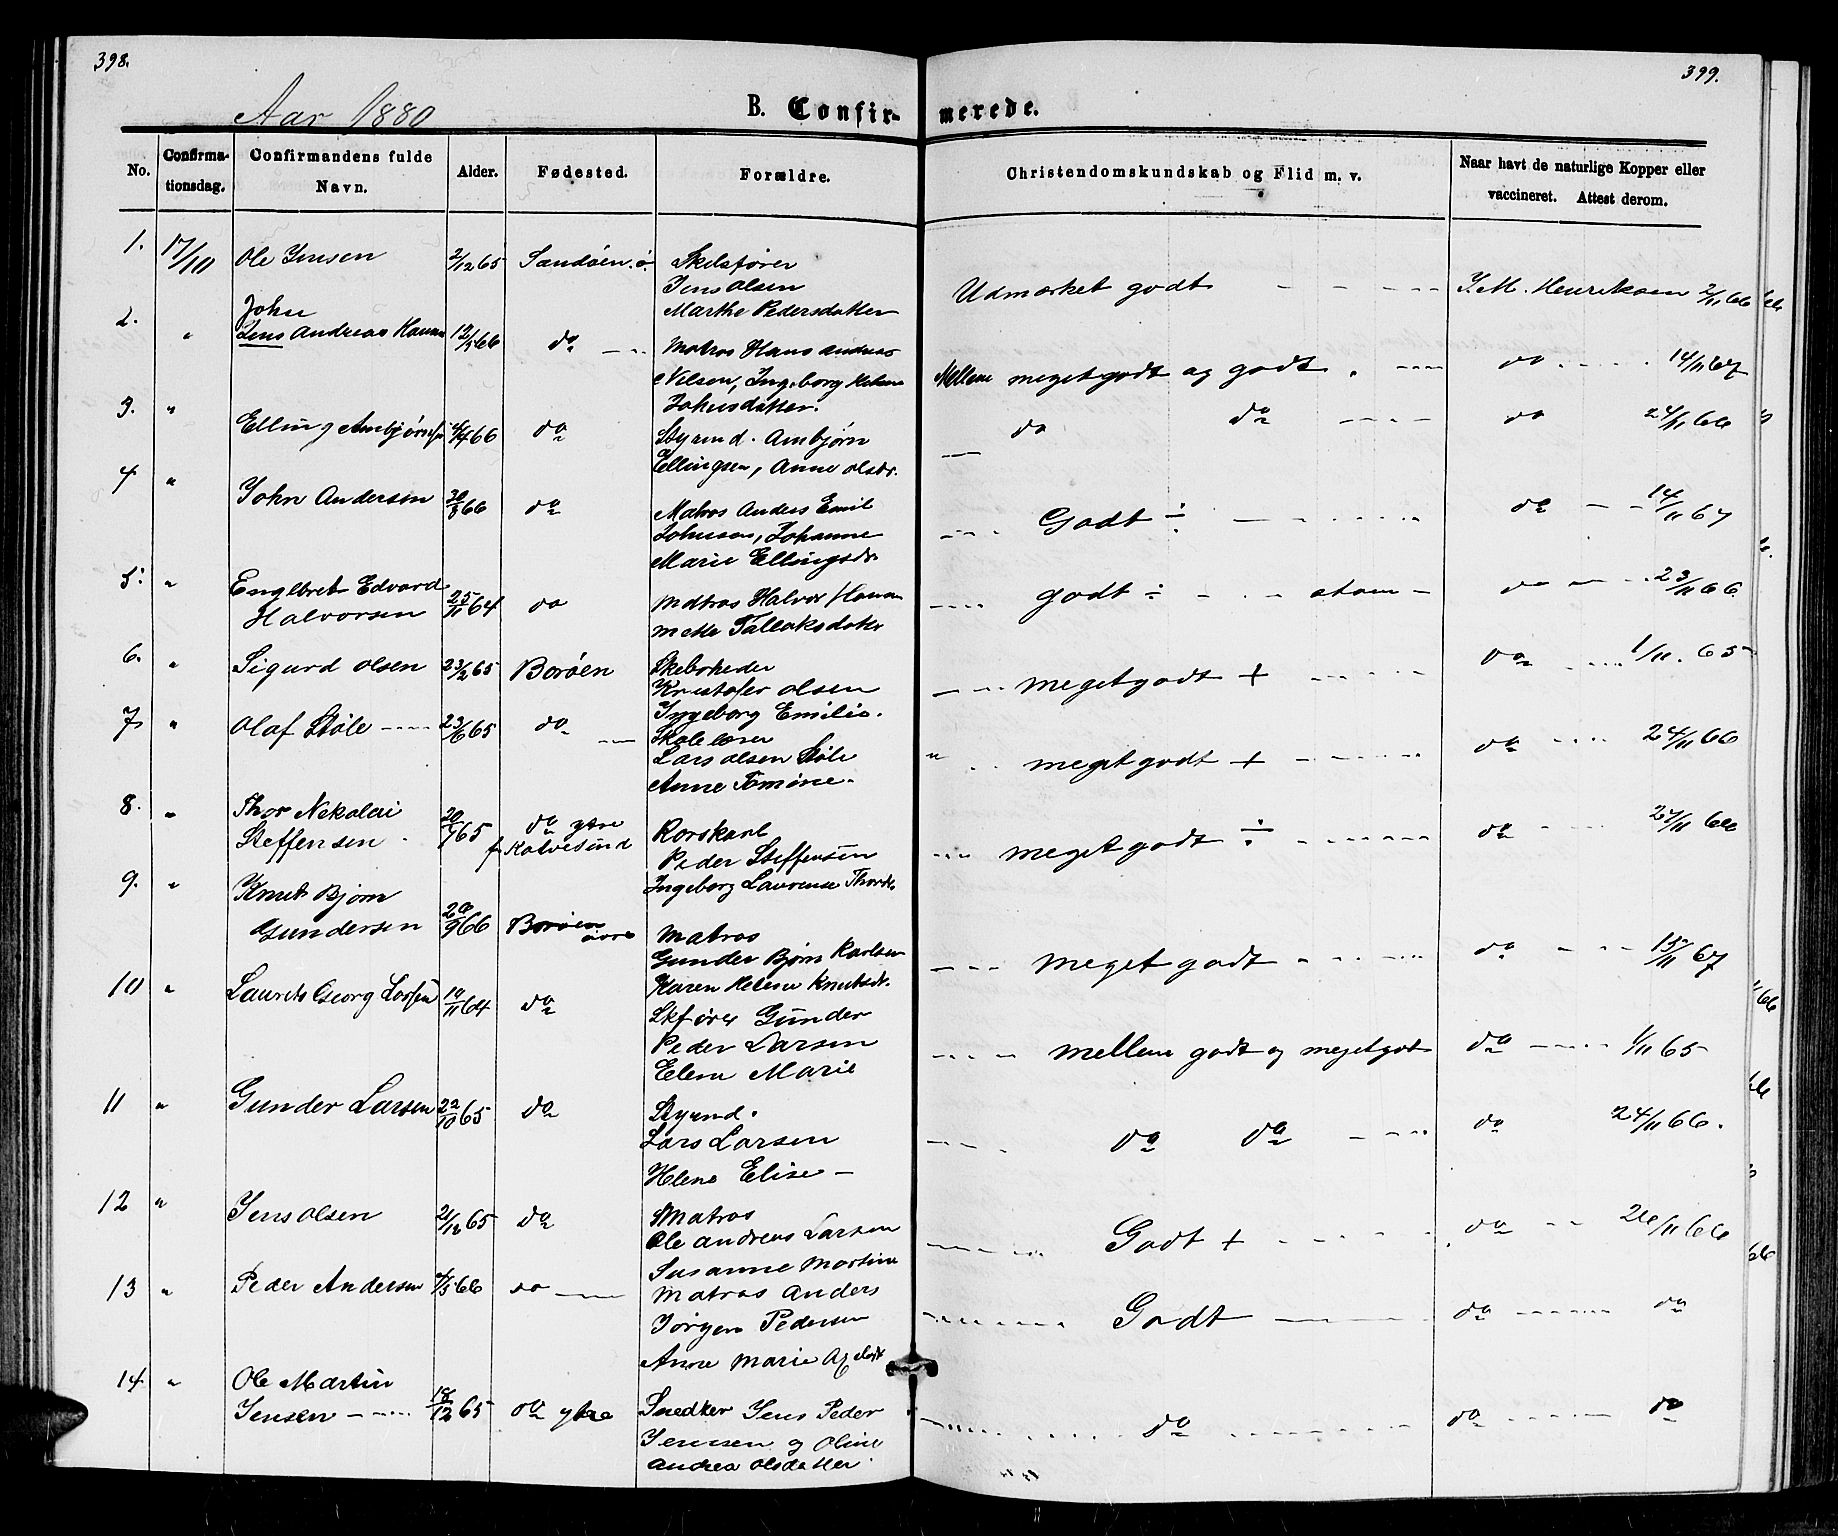 398.
399.
Aar 1880
B. Confir- merede.
No. Confirma- tionsdag. Confirmandens fulde Navn. Alder. Fødested. Forældre. Christendomskundskab og Flid m. v. Naar havt de naturlige Kopper eller vaccineret. Attest derom.
1. 17/10 Ole Jensen 2/12 65 Sandøen. ø. Skibsfører
Jens Olsen
Marthe Pedersdatter
Udmærket godt J. M. Henriksen 2/11 66
2. " John
Jens Andreas Hansen 12/5 66 do Matros Hans Andreas
Nilsen, Ingeborg Helene
Johnsdatter.
Mellem meget godt og godt do 14/11 67
3. " Elling Ambjørnsen 4/4 66 do Styrmd. Ambjørn
Ellingsen, Anne Olsdr.
do do do 24/11 66
4 " John Andersen 30/8 66 do Matros Anders Emil
Johnsen, Johanne
Marie Ellingsdr.
Godt ÷ do 14/11 67
5. " Englbret Edvard
Halvorsen 25/11 64 do Matros Halvor Hansen
Mette Tallaksdatter
godt ÷ do 23/11 66
6. " Sigurd Olsen 23/2 65 Borøen Skibsreder
Kristofer Olsen
Ingeborg Emilie.
meget godt + do 1/11. 65
7 " Olaf Støle 23/6 65 do Skolelærer
Lars Olsen Støle
Anne Tomine.
meget godt + do 24/11 66
8. " Thor Nikolai
Steffensen 20/7 65 do ytre
f Kalvesund Rorskarl
Peder Steffensen
Ingeborg Laurense Thordr.
meget godt ÷ do 24/11 66
9. " Knut Bjørn
Gundersen 20/9 66 Borøen
øvre Matros
Gunder Bjørn Karlsen
Karen Helene Knutsdr.
meget godt do 15/11 67
10 " Laurits Georg Larsen 10/11 64 do Skfører Gunder
Peder Larsen
Elene Marie
mellem godt og meget godt do 1/11 65
11 " Gunder Larsen 22/10 65 do Styrmd.
Lars Larsen
Helene Elise
do do do 24/11 66.
12 " Jens Olsen 21/12 65 do Matros
Ole Andreas Larsen
Susanne Martine
Godt + do 26/11 66
13 " Peder Andersen 4/5 66 do Matros Anders
Jørgen Pedersen
Anne Marie
Godt do do
14 " Ole Martin
Jensen 18/12 65 do ytre Snedker Jens Peder
Jensen og Oline
Andrea Olsdatter.
do do do